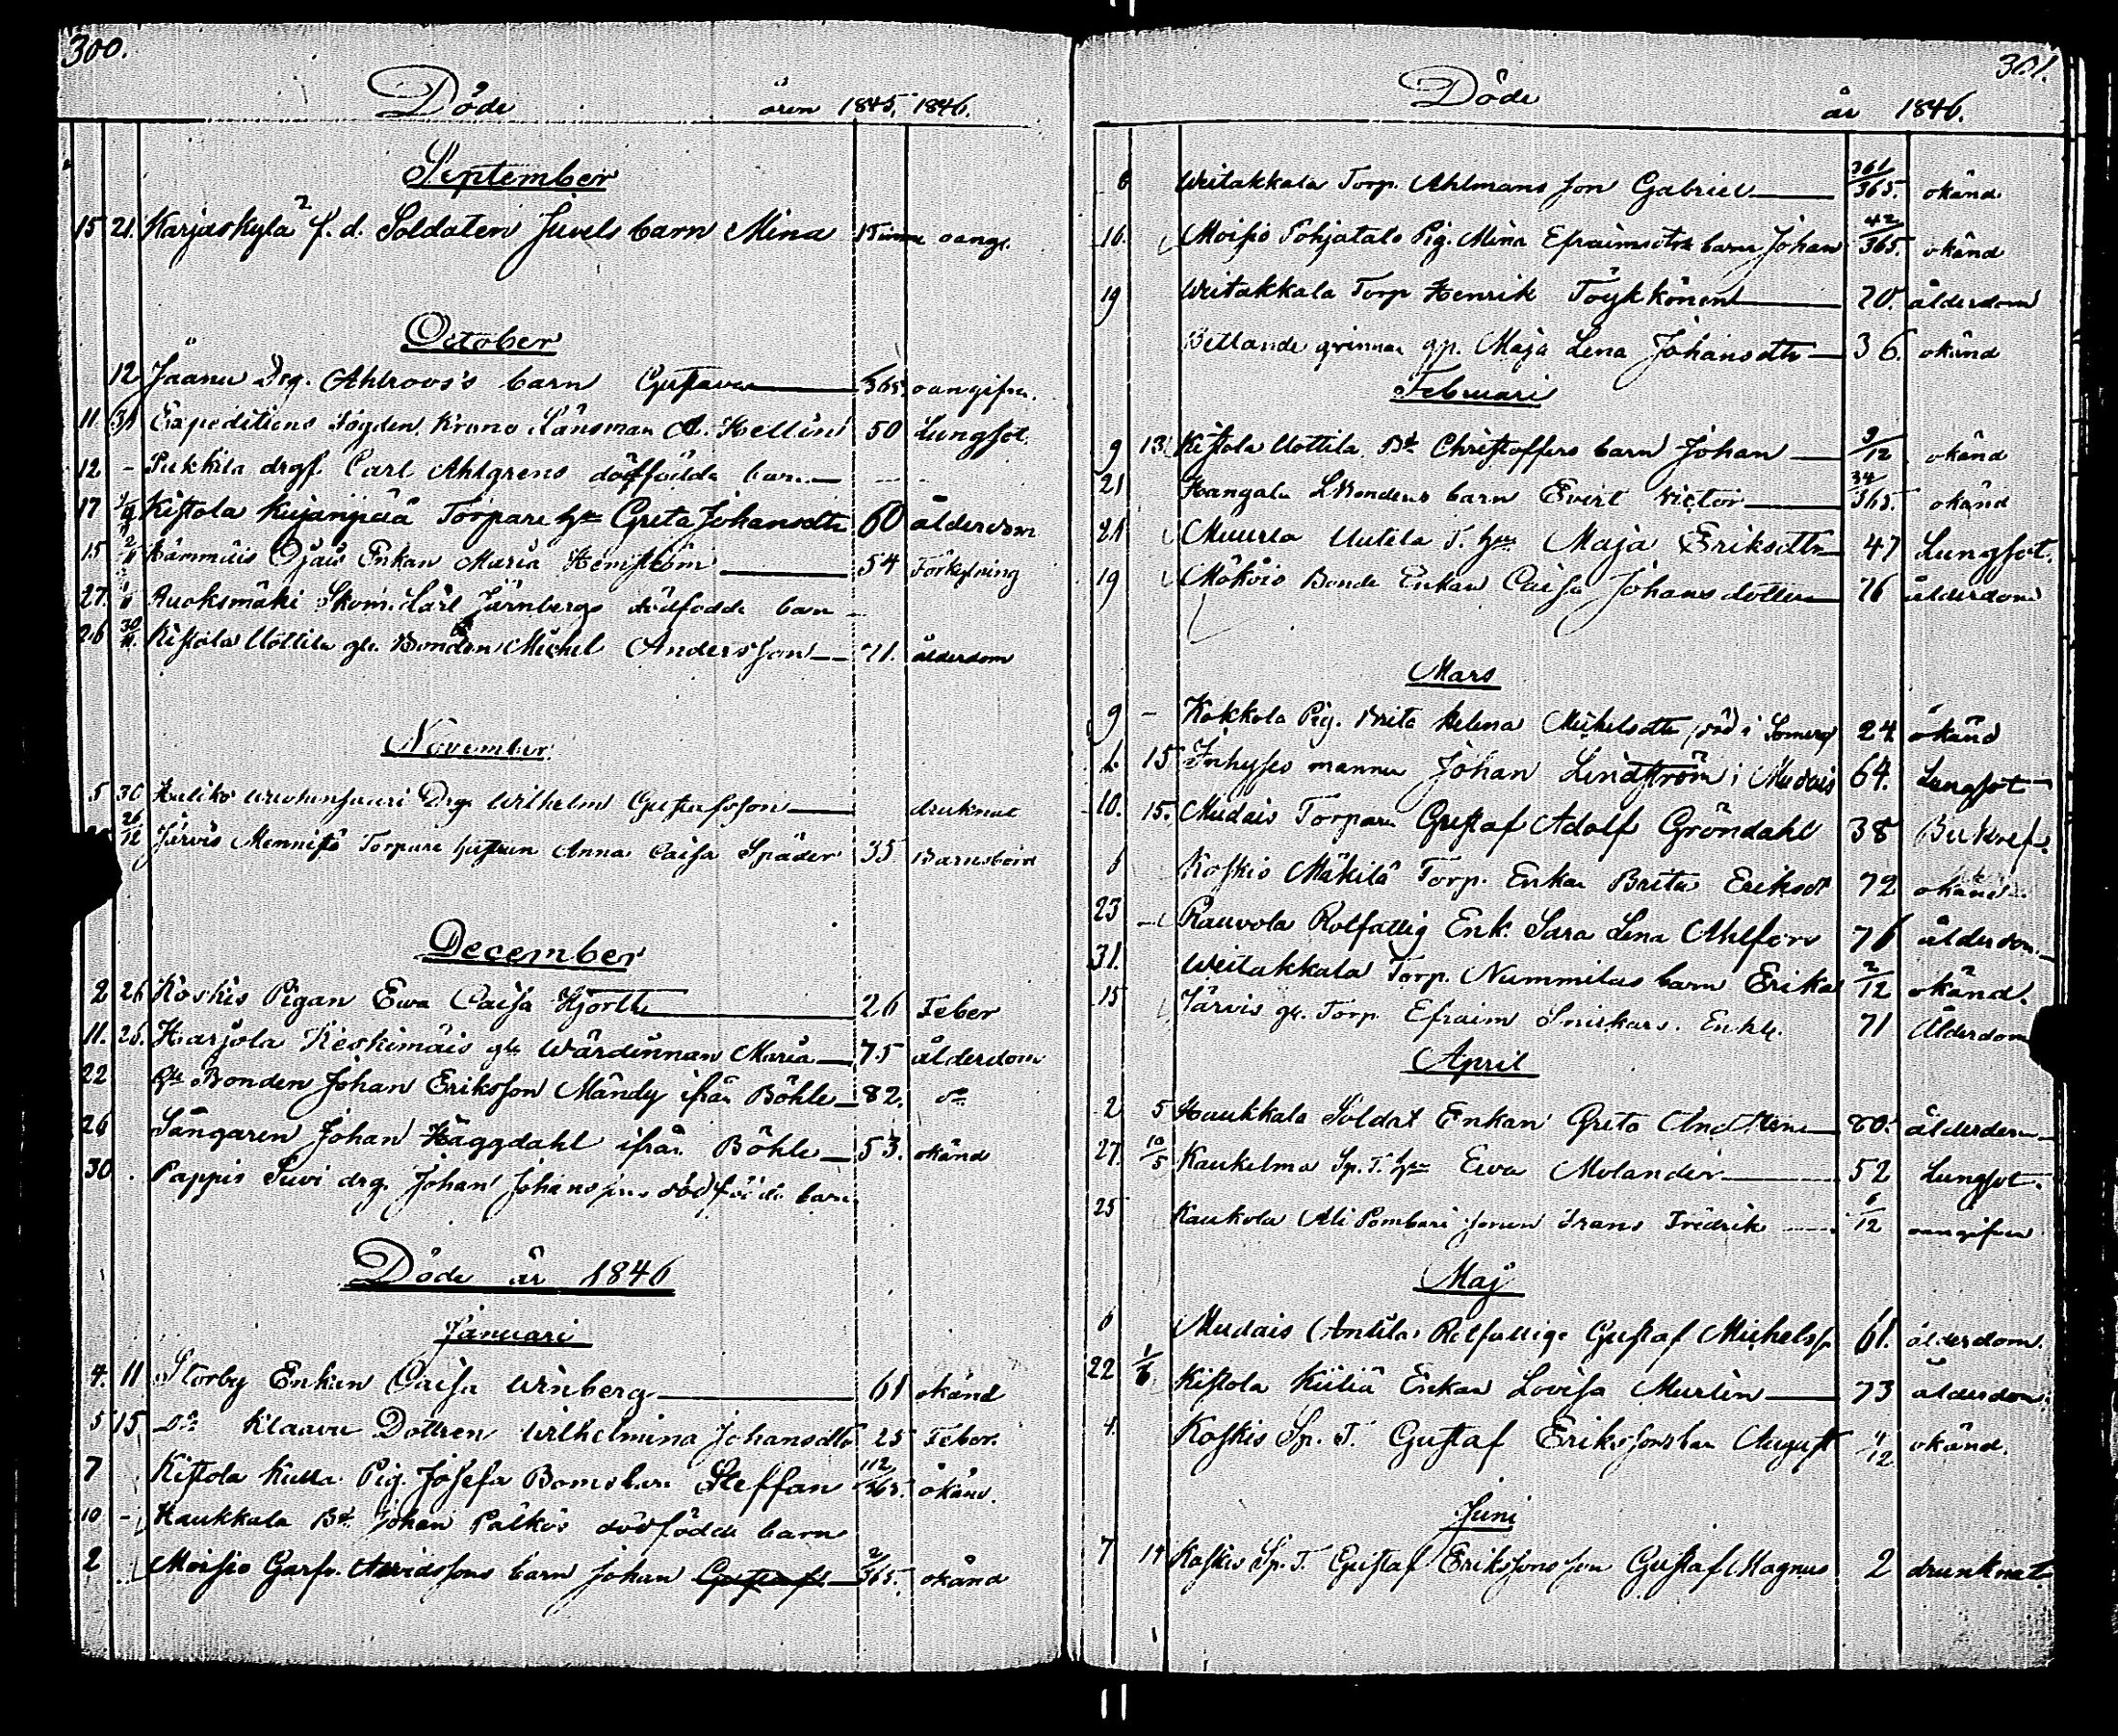 300.
Döde åren 1845, 1846.
September
15 21. Karjaskylä f. d. Soldaten Juvels barn Mina 15 oangr.
October
12 Jaanu Drg. Ahlroos's barn Gustava 365. oangifven.
11 31 Expeditions Fogden, Krono Länsman A. Hellen 50 Lungsot.
12 - Pukkila drgs. Carl Ahlgrens dödfödda barn
17 Kistola Kujanpää Torpare hu Greta Johansdtr 60 ålderdom
15 2/11 Hämmäis Ojais Enkan Maria Hemström 54 Förkylning
27. 1/11 Ruoksmäki Skom. Carl Järnbergs dödfödda barn
26 30/11 Kistola Uottila gl. Bonden Michel Andersson 71. ålderdom
November
5 30 Haliko Drg. Wilhelm Gustafsson druknat
26/12 Järvis Mennistö Torpare hustrun Anna Caisa Späder 35 Barnsbörd
December
2 26 Koskis Pigan Ewa Caisa Hjorth 26 Feber
11. 26. Harjola Keskimäis gla Wärdinnan Maria 75 ålderdom
22 Gle Bonden Johan Eriksson Mändy ifrån Böhle 82. do
26 Sångaren Johan Häggdahl ifrån Böhle 53. okänd
30 Pappis Suvi drg. Johan Johanssons dödfödda barn
Döde år 1846
Januari
4. 11 Storby Enkan Caisa Winberg 61 okänd
5 15 Do Klaavu Dottren Wilhelmina Johansdtr 25 Feber.
7 Kistola Kulla Pig. Josefa Boms barn Steffan 112/365. okänd.
10 - Haukkala Bd. Johan Palkis dödfödda barn
2 Moisio Garfv. Arvidssons barn Johan Gustaf 2/365. okänd
301.
Döde år 1846.
6 Weitakkala Torp. Ahlmans son Gabriel 361/365. okänd
16. Moisio Pohjatalo Pig. Mina Efraimsdtrs barn Johan 42/365. okänd
19 Weitakkala Torp Henrik Töykkönen 70. ålderdom
Betlande qvinnan gp. Maja Lena Johansdtr 36. okänd
Februari
9 13 Kistola Uottila Bd Christoffers barn Johan 9/12 okänd
21 Hangala LBondens barn Evert Victor 34/365. okänd
21 Muurla Uutela T. hu Maja Eriksdtr 47 Lungsot.
19 Mököis Bonde Enkan Caisa Johans dotter 76 ålderdom
Mars
9 - Kokkola Pig. Brita Helena Michelsdtr död i Somero 24 okänd
6. 15 Inhyses mannen Johan Lindström i Mudais 64. Lungsot
10. 15. Mudais Torparen Gustaf Adolf Gröndahl 38 Bukref.
6 Koskis Mäkilä Torp. Enkan Brita Eriksdt 72 okänd.
23 - Rauvola Rotfattig Enk. Sara Lena Ahlfors 76 ålderdom
31. Weitakkala Torp. Nummilas barn Erika 2/12 okänd.
15 Järvis gl. Torp. Efraim Snickars. Enkl. 71 Ålderdom
April
2 5 Haukkala Soldat Enkan Greta 80. ålderdom
27. 10/5 Kaukelma Sp. T. hu Ewa Molander 52 Lungsot.
25 Kaukola Ali Pombari sonen Frans Fredrik 6/12 oangifven
Maj
6 Mudais Anttila Rotfattige Gustaf Michelss. 61. ålderdom.
22 1/6 Kistola Kiiliä Enkan Lovisa Murlin 73 ålderdom.
4. Koskis Sp. T. Gustaf Erikssons barn August 4/12 okänd.
Juni
7 14 Koskis Sp. T. Gustaf Erikssons son Gustaf Magnus 2 drunknat.